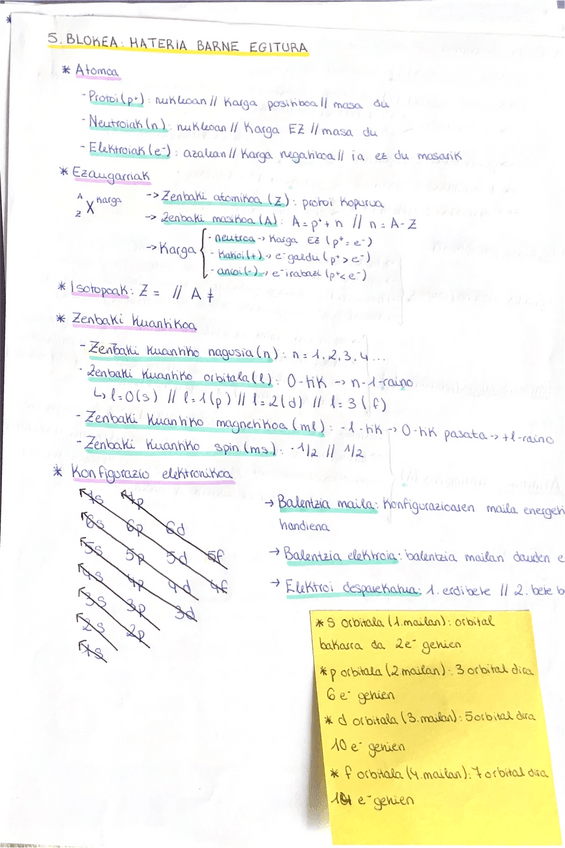 5. BLOKEA: MATERIA BARNE EGITURA
* Atomoa
- Protoi (p⁺): nukleoan // Karga positiboa // masa du
- Neutroiak (n): nukleoan // Karga EZ // masa du
- Elektroiak (e⁻): azalian // Karga negatiboa // ia ez du masarik
* Ezaugarriak
A Z X karga
→ Zenbaki atomikoa (Z): protoi kopurua
→ Zenbaki masikoa (A): A = p⁺ + n // n = A - Z
→ Karga
- neutroa → Karga EZ (p⁺ = e⁻)
- Katioi (+) → e⁻ galdu (p⁺ > e⁻)
- anioi (-) → e⁻ irabazi (p⁺ < e⁻)
* Isotopoak: Z = // A ≠
* Zenbaki Kuantikoa
- Zenbaki Kuantiko nagusia (n): n = 1, 2, 3, 4...
- Zenbaki Kuantiko orbitala (l): 0-tik → n-1-raino
↳ l = 0 (s) // l = 1 (p) // l = 2 (d) // l = 3 (f)
- Zenbaki Kuantiko magnetikoa (ml): -l-tik → 0-tik pasata → +l-raino
- Zenbaki Kuantiko spin (ms): -1/2 // 1/2...
* Konfigurazio elektronikoa
7s 7p
6s 6p 6d
5s 5p 5d 5f
4s 4p 4d 4f
3s 3p 3d
2s 2p
1s
→ Balentzia maila: Konfigurazioaren maila energeti
handiena
→ Balentzia elektroia: balentzia mailan dauden e
→ Elektroi desparekatua: 1. erdi bete // 2. bete b
* s orbitala (1. mailan): orbital
bakarra da 2e⁻ gehien
* p orbitala (2 mailan): 3 orbital dira
6 e⁻ gehien
* d orbitala (3. mailan): 5 orbital dira
10 e⁻ gehien
* f orbitala (4. mailan): 7 orbital dira
e⁻ gehien